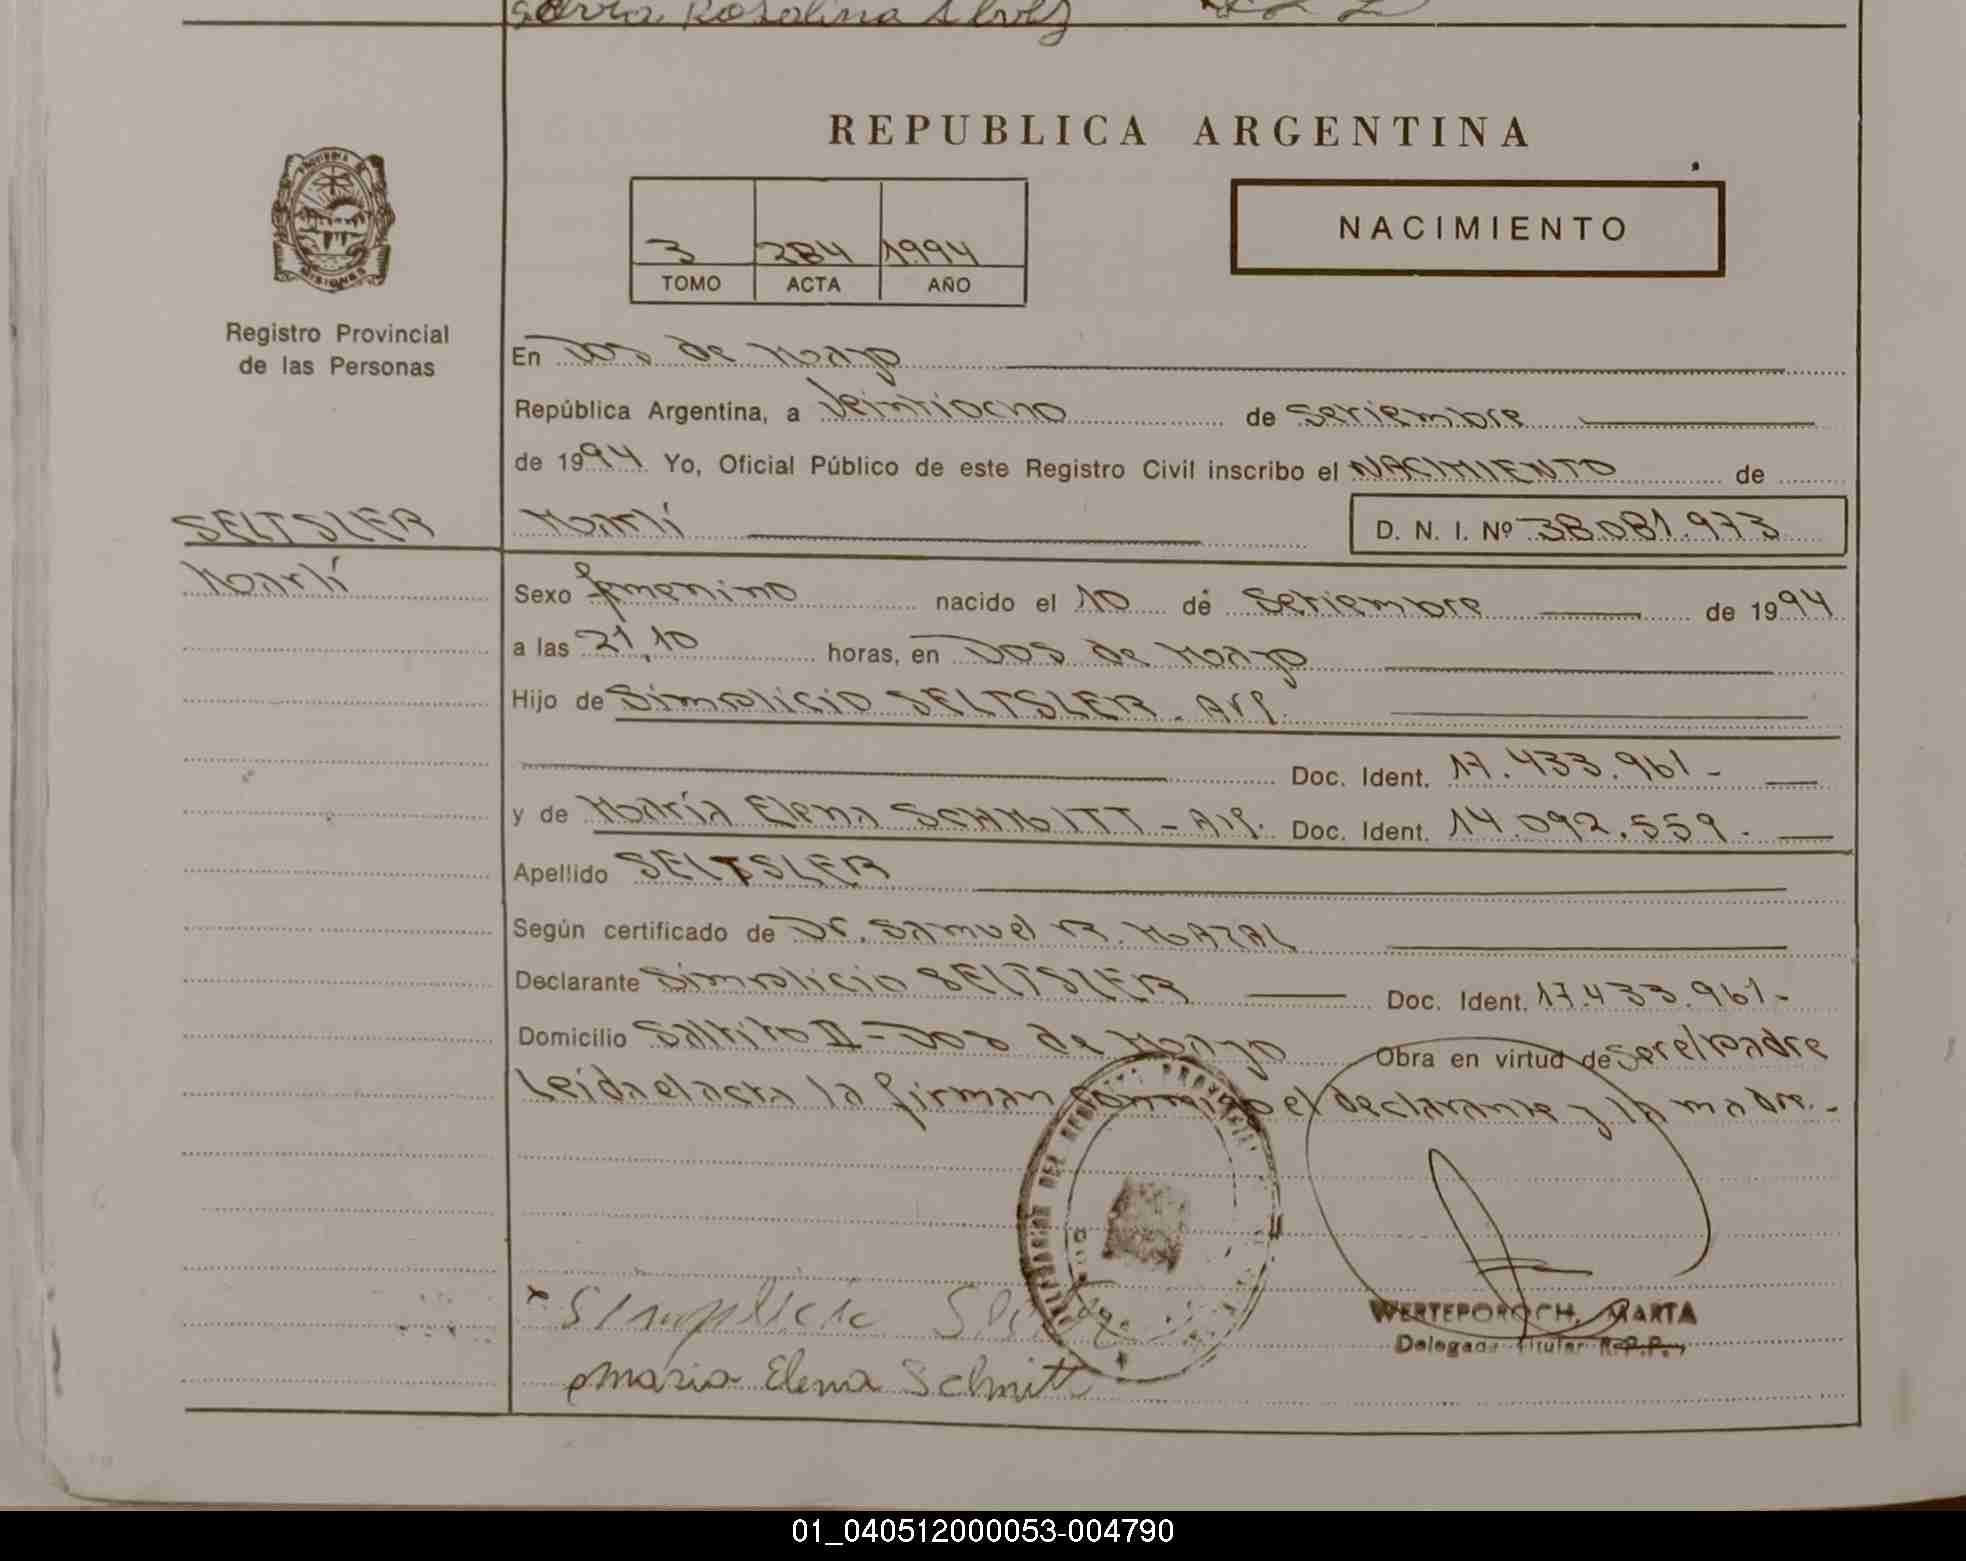 Rosalina Alvez
REPUBLICA ARGENTINA
NACIMIENTO
3 284 1994
TOMO ACTA AÑO
Registro Provincial
de las Personas
MISIONES
En Dos de Mayo
República Argentina, a Veintiocho de Setiembre
de 1994 Yo, Oficial Público de este Registro Civil inscribo el NACIMIENTO de
SELTSLER
Marlí
Marlí D. N. I. Nº 38.081.973
Sexo femenino nacido el 10 de Setiembre de 1994
a las 21,10 horas, en Dos de Mayo
Hijo de Simplicio SELTSLER - Arg.
Doc. Ident. 17.433.961-
y de María Elena SCHMITT - Arg. Doc. Ident. 14.092.559.
Apellido SELTSLER
Según certificado de Dr. Samuel R. MAZAL
Declarante Simplicio SELTSLER Doc. Ident. 17.433.961-
Domicilio Saltito II - Dos de Mayo Obra en virtud de ser el padre
Leida el acta la firman conmigo el declarante y la madre.-
DELEGACION DEL REGISTRO PROVINCIAL
Simplicio
WERTEPOROCH, MARTA
Delegada Titular R.P.P.
Maria Elena Schmitt
01_040512000053-004790